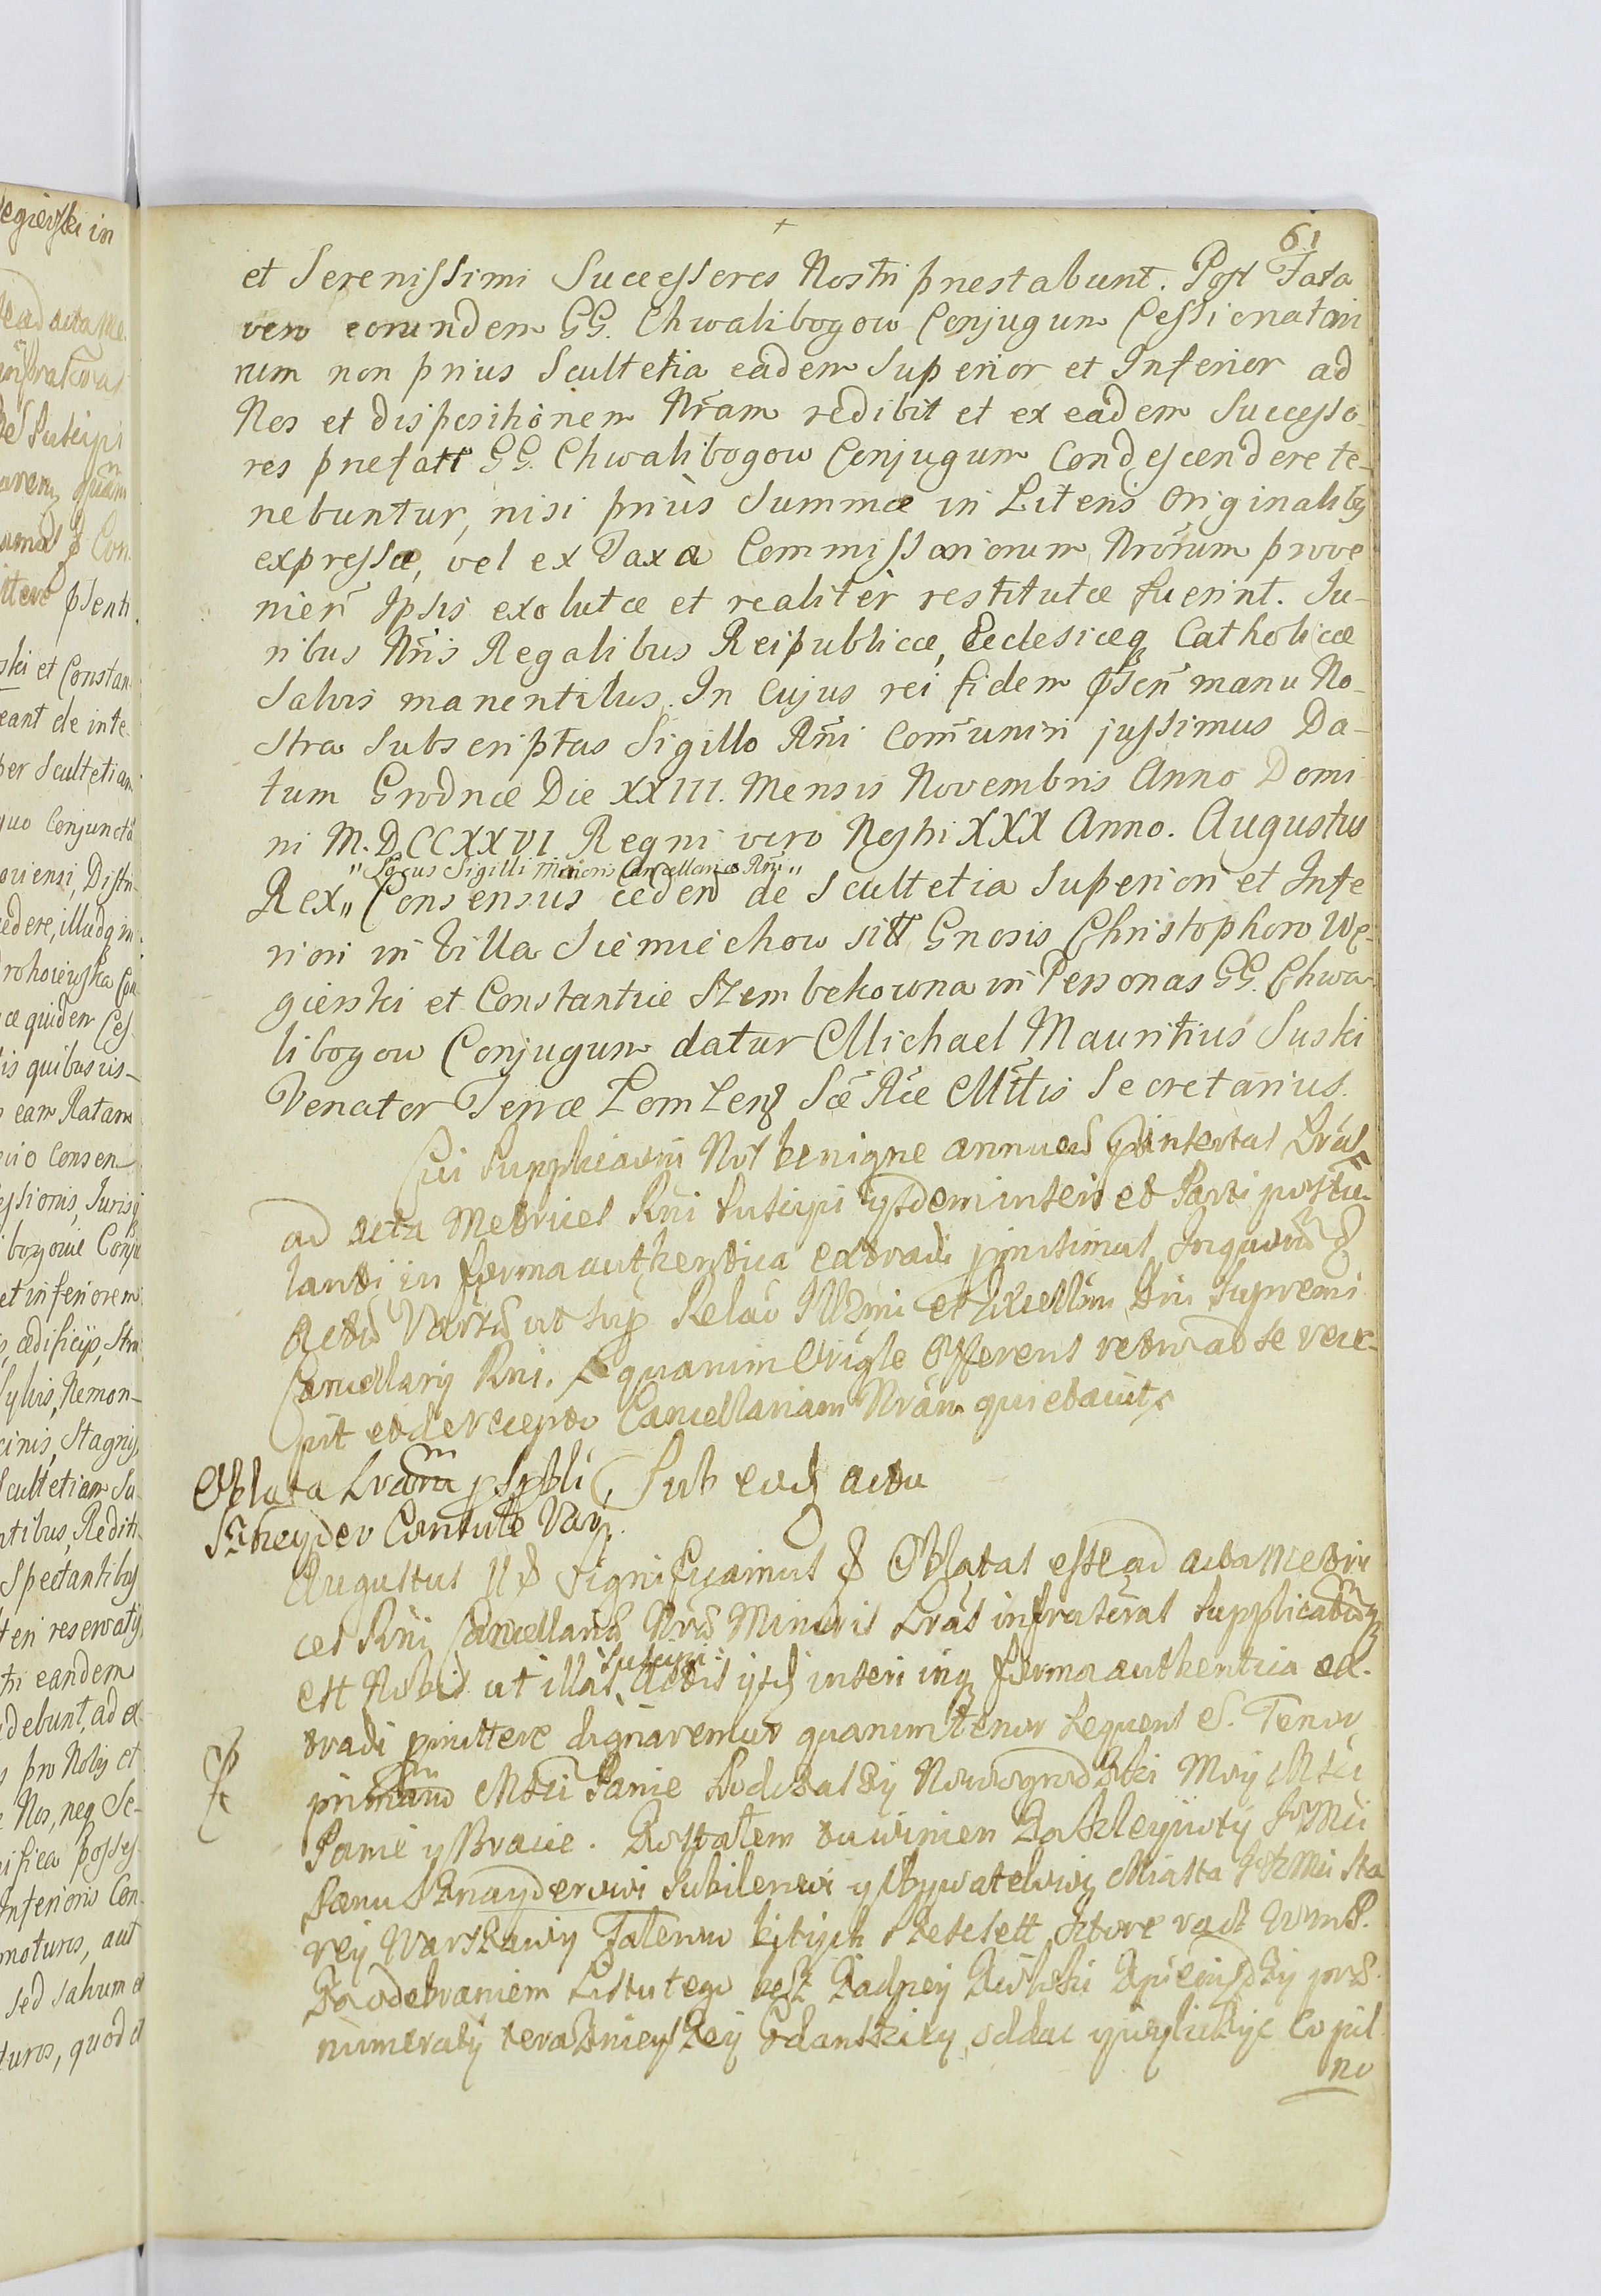 61
et Serenissimi Successores Nostri pnestabunt. Post Fata
vero eorundem GG. Chwalibogow Conjugum Cessionatari
rum non prius Scultetia eadem Superior et Inferior ad
Nos et dispositionem Nram redibit et ex eadem Successo-
res prefatt GG. Chwalibogow Conjugum Condescendere te-
nebuntur, nisi prius Summæ in Literis Originalibq
expressæ, vel ex Taxa Commissariorum Nrorum prove
nien Ipsis exolutæ et realiter restitutæ fuerint. Iu-
ribus Nris Regalibus Reipublicæ, Ecclesiæq Catholicæ
Salvis manentibus. In Cujus rei fidem psen manu No-
stra Subscriptas Sigillo Rni Comuniri jussimus Da-
tum Grodnæ Die XXIII. Mensis Novembris Anno Domi
ni M.DCCXXVI Regni vero Nostri XXX Anno. Augustus
"Locus Sigilli Maioris Cancellariæ Rni"
Rex" Consensus ceden de Scultetia Superiori et Infe
riori in Villa Siemiechow sitt Gnosis Christophoro We-
gierski et Constantiæ Szembekowna in Personas GG. Chwa
libogow Conjugum datur Michael Mauritius Suski
Venator Terræ Lomzens Sæ Ræ Mttis Secretarius.
Cui Supplicaõni Nos benigne annuen pinsertas Lras
ad acta Metrices Rni Suscipi ijsdem inseri et Parti postu-
lanti in forma authentica extradi pmisimus In quorum &
Actum Varsa ut sup Relao Illmi et Excellmi Dni Supremi
Cancellarij Rni. quarum Origle Offerens retro ad se rece-
pit et de recepto Cancellariam Nram quietavit
Oblata Lrarum Sub eod actu
Szneyder Contute Var.
Augustus II & Significamus & Oblatas esse ad acta Metri
ces Rni Cancellariæ Nræ Minoris Lras infrascras Supplicatumq
Suscipi
est Nobis ut illas Actis ijsd inseri inq forma authentica ex-
tradi pmittere dignaremur quarum tenor sequens e. Tenor
primarum Mści Panie Podczaszy Nowogrodzki Moy Mści
Panie y Bracie. Zostałem winien Jo Mci
Panu Sznayderowi Jubilerowi y Obywatelowi Miasta JKMci Sta
rey Warszawy Talerow bitych które racz WmP.
Za odebraniem Listu tego bez żadney Zwłoki
teraznieyszey Gdanskiey oddac y wyliczyc Co pil
no